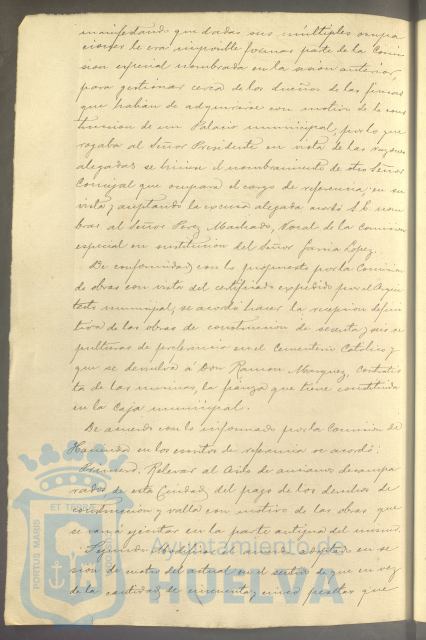 manifestando que dadas sus múltiples ocupa
ciones le era imposible formar parte de la Comi
sion especial nombrada en la sesion anterior
para gestionar cerca de los dueños de las fincas
que habian de adquirirse con motivo de la cons
truccion de un Palacio municipal, por lo que
rogaba al Señor Presidente en vista de las razones
alegadas se hiciese el nombramiento de otro Señor
Concejal que ocupara el cargo de referencia; en su
vista y aceptando la excusa alegada acordó S. E. nom
brar al Señor Perez Machado, Vocal de la Comision
especial en sustitucion del Señor Garcia Lopez.
De conformidad con lo propuesto por la Comision
de obras con vista del certificado expedido por el Arqui
tecto municipal, se acordó hacer la recepcion defini
tiva de las obras de construccion de sesenta y seis se
pulturas de preferencia en el Cementerio Católico y
que se devuelva á Don Ramon Marquez, Contratis
ta de las mismas, la fianza que tiene constituida
en la Caja municipal.
De acuerdo con lo informado por la Comision de
Hacienda en los escritos de referencia se acordó:
Primero. Relevar al Asilo de ancianos desampa
rados de esta Ciudad, del pago de los derechos de
construccion y valla con motivo de las obras que
se van á ejecutar en la parte antigua del mismo.
Segundo. Modificar el acuerdo adoptado en se
sion de cuatro del actual en el sentido de que en vez
de la cantidad de cincuenta y cinco pesetas que
PORTUS MARIS
ET TERRE
Ayuntamiento de
HUELVA